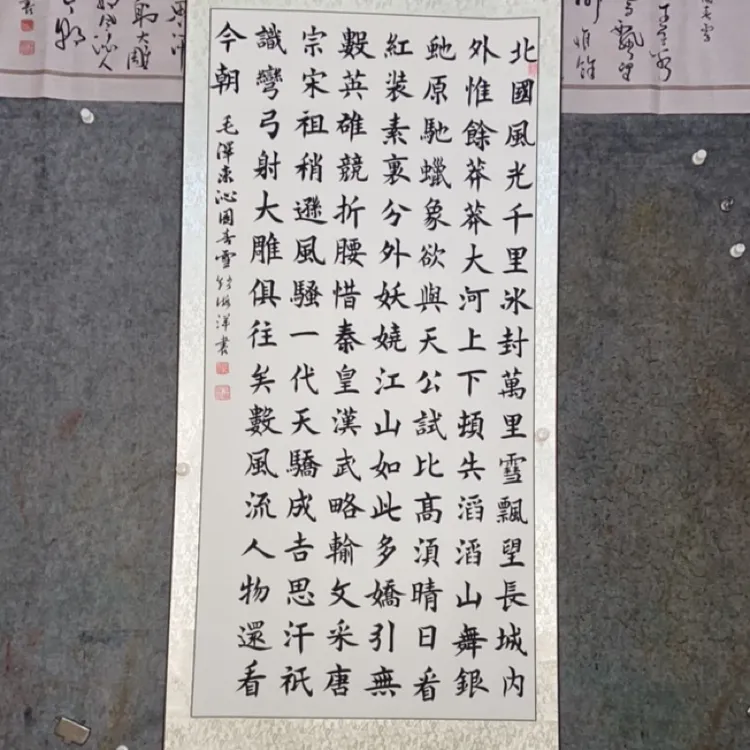 北國風光千里冰封萬里雪飄望長城内
外惟餘莽莽大河上下頓失滔滔山舞銀
虵原馳蠟象欲與天公試比髙湏晴日看
紅装素裏分外妖嬈江山如此多嬌引無
數英雄競折腰惜秦皇漢武略輸文采唐
宗宋祖稍遜風騷一代天驕成吉思汗衹
識彎弓射大雕俱往矣數風流人物還看
今朝 毛澤東沁園春雪 海洋書